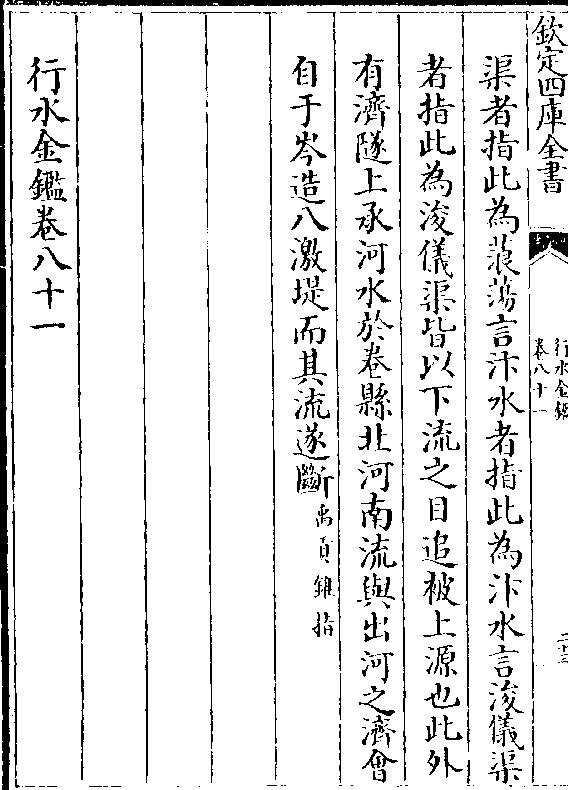 欽定四庫全書
行水金鑑
卷八十一
渠者指此為蒗蕩言汴水者指此為汴水言浚儀渠
者指此為浚儀渠皆以下流之目追被上源也此外
有濟隧上承河水於卷縣北河南流與出河之濟會
自于岑造八激堤而其流遂斷禹貢錐指
行水金鑑卷八十一